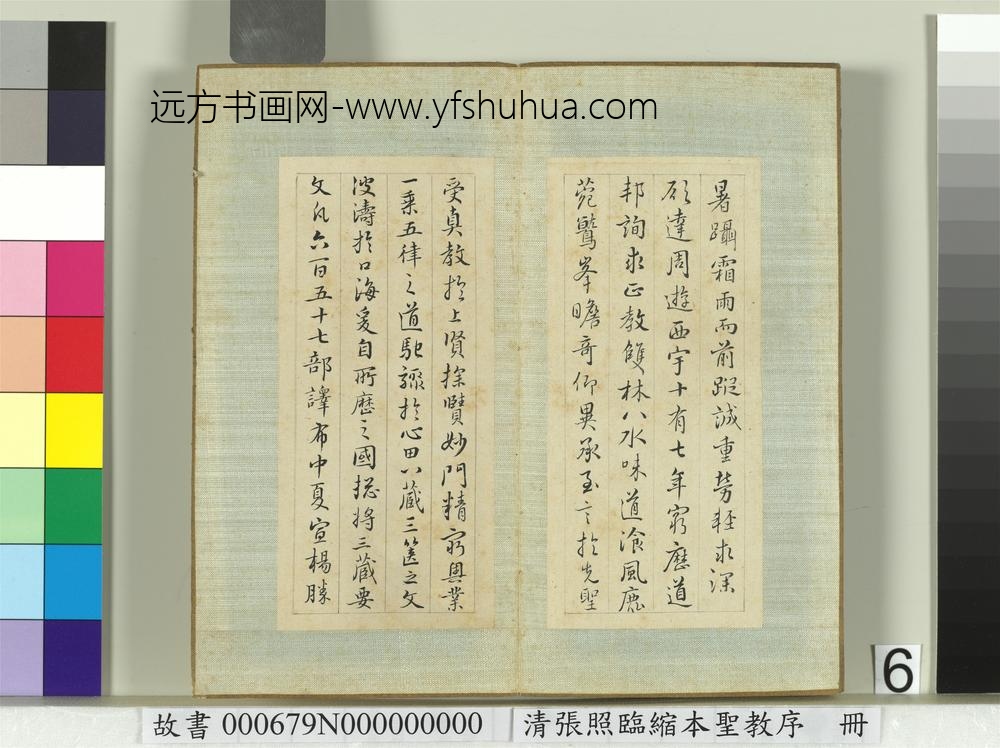 远方书画网-www.yfshuhua.com
暑躡霜雨而前蹤誠重勞輕求深
願達周遊西宇十有七年窮歷道
邦詢求正教雙林八水味道湌風鹿
菀鷲峯瞻奇仰異承至言於先聖
受真教於上賢探賾妙門精窮奧業
一乘五律之道馳驟於心田八藏三篋之文
波濤於口海爰自所歷之國揔將三藏要
文凡六百五十七部譯布中夏宣揚勝
6
故書 000679N000000000 清張照臨縮本聖教序 冊